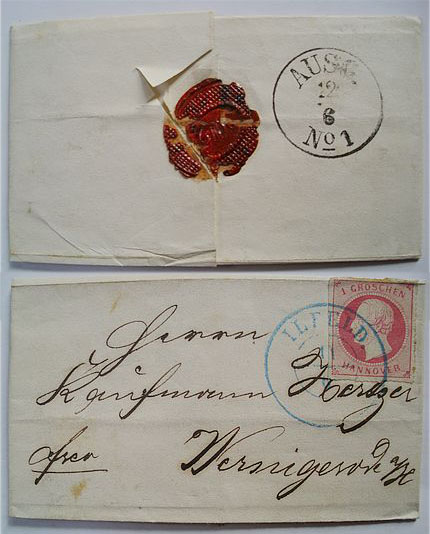 AUSG
12
6
No 1
1 GROSCHEN
HANNOVER
ILFELD
Herrn
Kaufmann Hertzer
frco
Wernigerode a/H